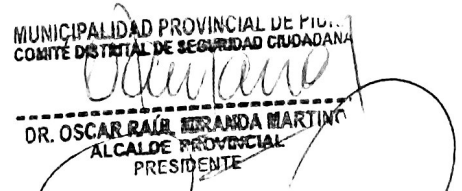 MUNICIPALIDAD PROVINCIAL DE
COMITÉ DISTRITAL DE SEGURIDAD CIUDADANA
DR. OSCAR RAÚL MIRANDA MARTINO
ALCALDE PROVINCIAL
PRESIDENTE